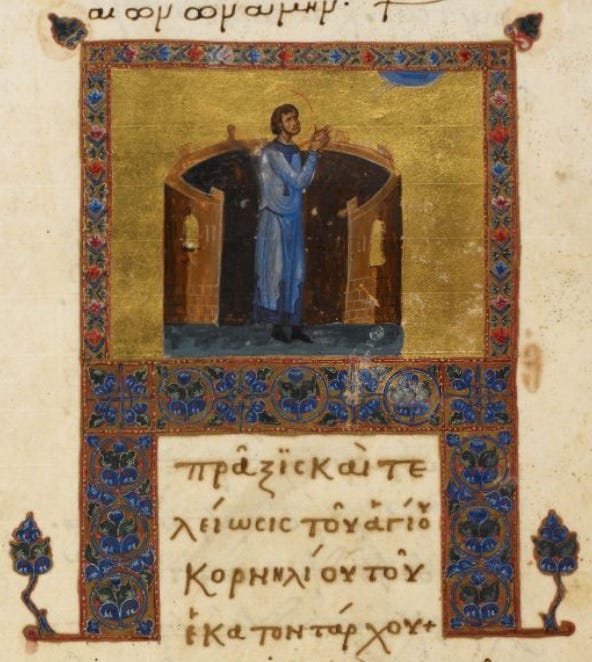 πρᾶξϊς καὶ τε
λείωσις τοῦ ἁγίου
Κορνηλίου τοῦ
ἑκατοντάρχου+